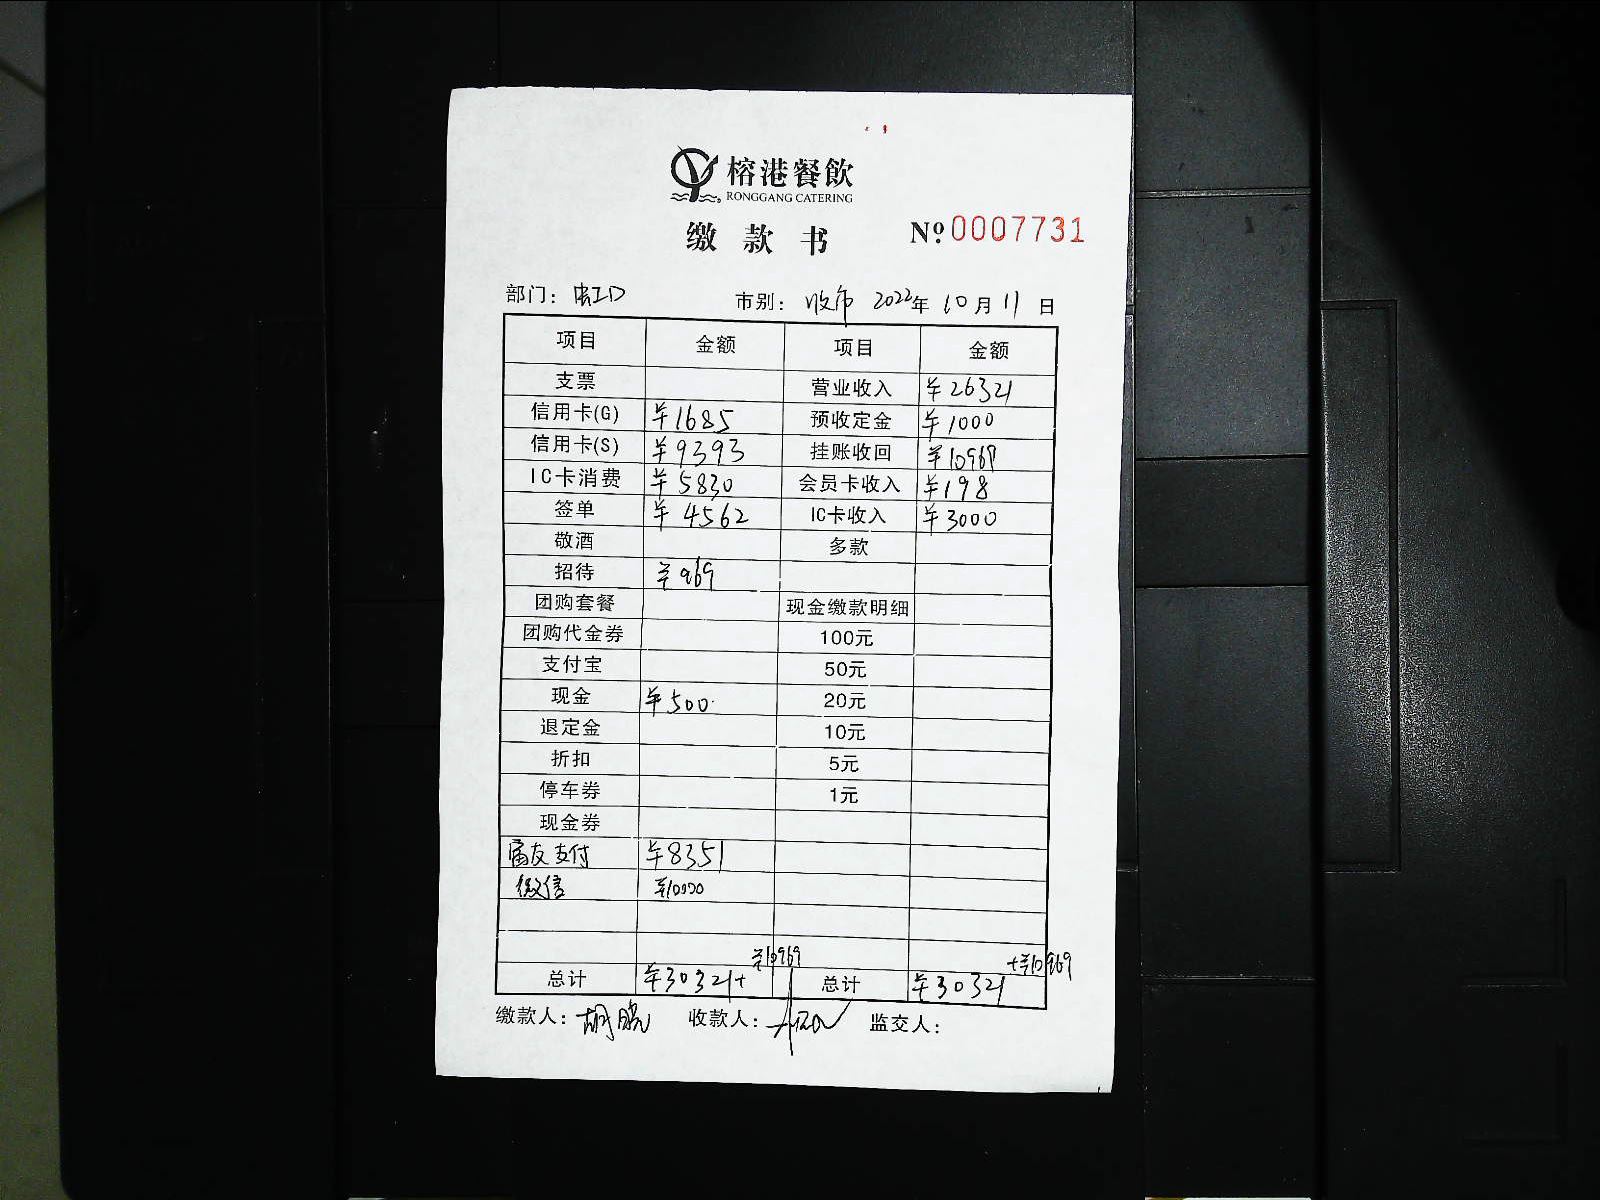 榕港餐飲
RONGGANG CATERING
缴款书 №0007731
部门: 虹口 市别: 收市 2022年10月11日
项目 金额 项目 金额
支票 营业收入 ¥26321
信用卡(G) ¥1685 预收定金 ¥1000
信用卡(S) ¥9393 挂账收回 ¥10969
IC卡消费 ¥5830 会员卡收入 ¥198
签单 ¥4562 IC卡收入 ¥3000
敬酒 多款
招待 ¥969
团购套餐 现金缴款明细
团购代金券 100元
支付宝 50元
现金 ¥500 20元
退定金 10元
折扣 5元
停车券 1元
现金券
富友支付 ¥8351
微信 ¥10000
总计 ¥30321+¥10969 总计 ¥30321+¥10969
缴款人: 胡晓 收款人: 监交人: